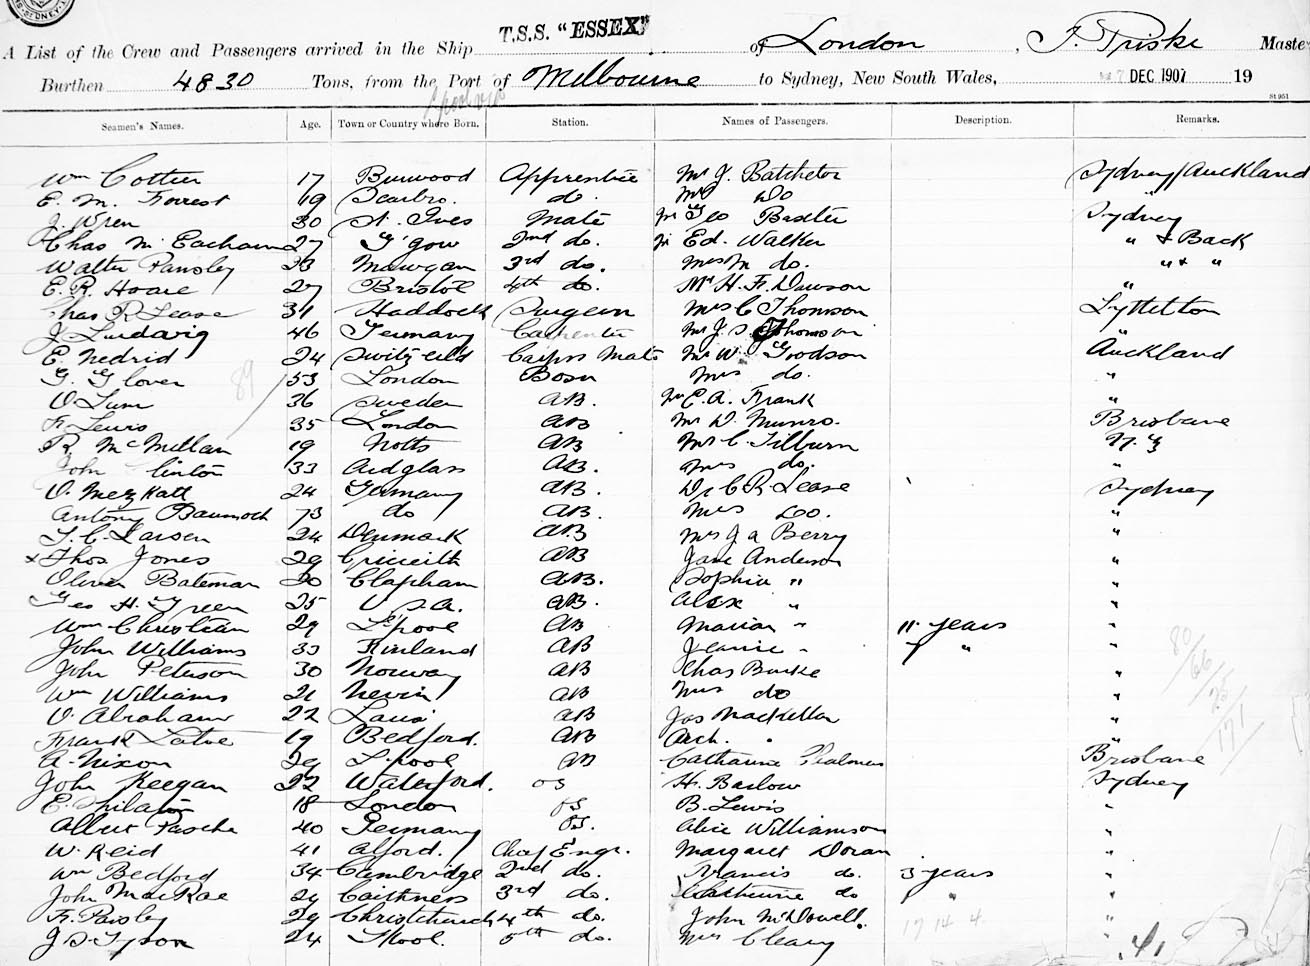 T.S.S. "ESSEX"
A List of the Crew and Passengers arrived in the Ship of London, Master
Burthen 4830 Tons, from the Port of Melbourne to Sydney, New South Wales, 7 DEC 1907 19
St 951
Seamen's Names. Age. Town or Country where Born. Station. Names of Passengers. Description. Remarks.
Wm Cottier 17 Burwood Apprentice Mr J. Batchelor Sydney/Auckland
E. M. Forrest 19 Scarbro. do. Do "
J. Wren 30 St. Ives Mate Geo Baxter Sydney
Chas Mc Eacharn 27 G'gow 2nd do. Ed. Walker " & Back
Walter Pansley 33 Mawgan 3rd do. do. " & "
E. R. Hoare 27 Bristol 4th do. Mr H. F. Dawson "
Chas R Lease 31 Haddock Surgeon Mrs C Thomson Lyttelton
J. Ludwig 46 Germany Carpenter Mr J. S. Thomson "
E. Nedrid 24 Carprs Mate Mr W. Goodson Auckland
G. Glover 53 London Bosn Mrs do. "
O Lum 36 Sweden AB. E. A. Frank "
F. Lewis 35 London AB Mr D. Munro. Brisbane
R McMillan 19 Notts AB Mr C Tilburn N.Z
John Clinton 33 Ardglass AB. Mrs do. "
O. 24 Germany AB. Dr C. R. Lease Sydney
Antony 73 do AB. Mrs Do. "
L. C. Larsen 24 Denmark AB Mrs J A Berry "
x Thos Jones 29 Criccieth AB Jane Anderson "
Oliver Bateman 20 Clapham AB. Sophia " "
Geo H. Green 25 U.S.A. AB. Alex " "
Wm Christian 29 L'pool AB Marian " 11 years "
John Williams 33 Finland AB Jeanie " 9 " "
John Peterson 30 Norway AB Chas Burke "
Wm Williams 21 Nevin AB Mrs do "
O. Abraham 22 AB Jas Mackellar "
Frank 19 Bedford. AB Arch. " "
A. Nixon 29 L'pool AB Catharine Brisbane
John Keegan 22 Waterford. OS H. Barlow Sydney
E. 18 London OS B. Lewis "
Albert Pasche 40 Germany OS. Alice Williamson "
W. Reid 41 Alford. Chief Engr. Margaret Doran "
Wm Bedford 34 Cambridge 2nd do. Francis do. 3 years "
John MacRae 29 Caithness 3rd do. Catherine do " "
F. Paisley 29 Christchurch 4th do. John McDowell. "
J S Tyson 24 5th do. Mrs Cleary "
89
80
66
25
171
17 14 4
41